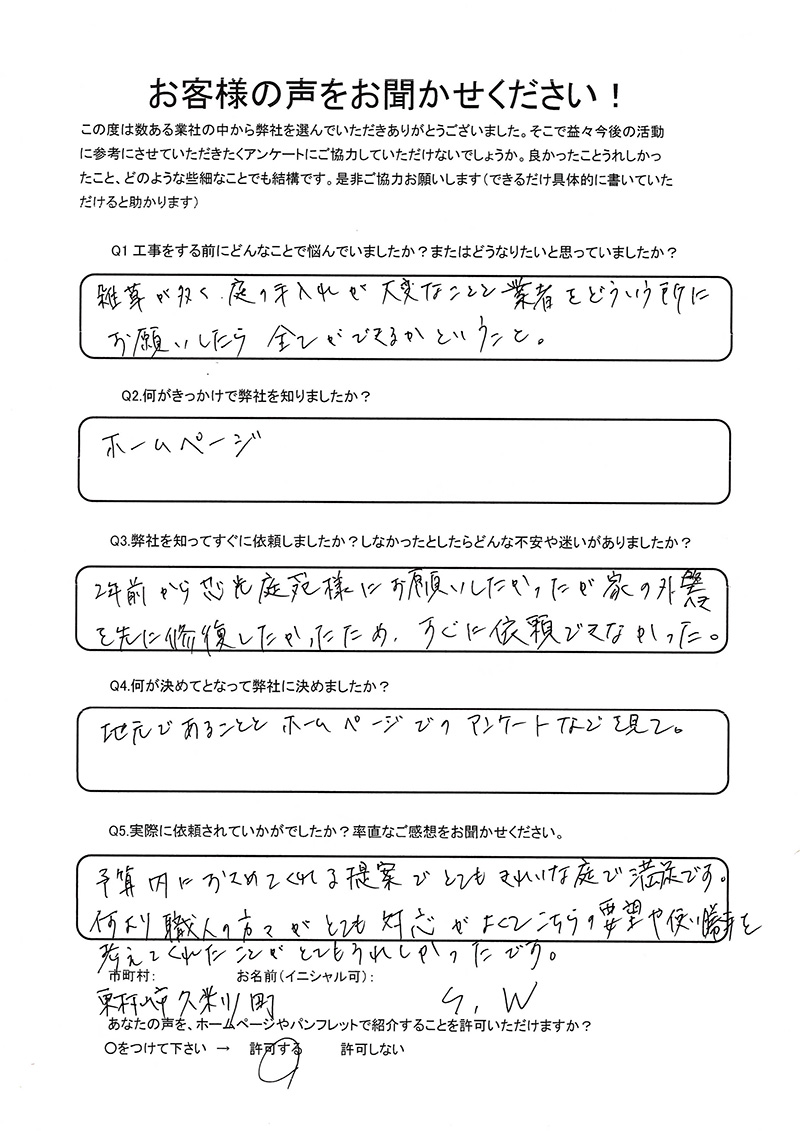 お客様の声をお聞かせください！
この度は数ある業社の中から弊社を選んでいただきありがとうございました。そこで益々今後の活動
に参考にさせていただきたくアンケートにご協力していただけないでしょうか。良かったことうれしかっ
たこと、どのような些細なことでも結構です。是非ご協力お願いします（できるだけ具体的に書いていた
だけると助かります）
Q1 工事をする前にどんなことで悩んでいましたか？またはどうなりたいと思っていましたか？
雑草が多く、庭の手入れが大変なことと業者をどういう所に
お願いしたら全てができるかということ。
Q2.何がきっかけで弊社を知りましたか？
ホームページ
Q3.弊社を知ってすぐに依頼しましたか？しなかったとしたらどんな不安や迷いがありましたか？
2年前から 庭苑様にお願いしたかったが家の外壁
を先に修復したかったため、すぐに依頼できなかった。
Q4.何が決めてとなって弊社に決めましたか？
地元であることとホームページでのアンケートなどを見て。
Q5.実際に依頼されていかがでしたか？率直なご感想をお聞かせください。
予算内におさめてくれる提案でとてもきれいな庭で満足です。
何より職人の方々がとても対応がよくてこちらの要望や使い勝手を
考えてくれたことがとてもうれしかったです。
市町村： お名前（イニシャル可）：
東村山市久米川町 S.W
あなたの声を、ホームページやパンフレットで紹介することを許可いただけますか？
〇をつけて下さい → 許可する 許可しない